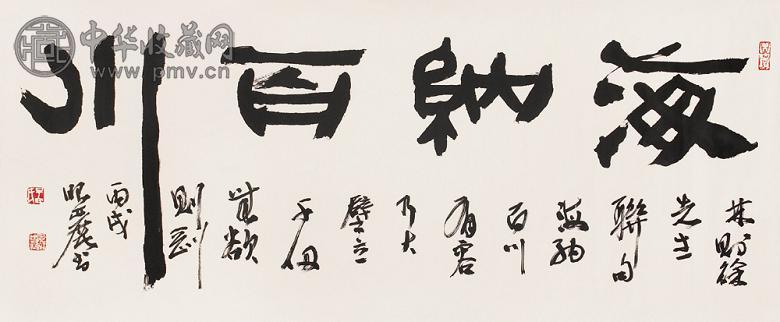 海納百川
林則徐
先生
聯句
海納
百川
有容
乃大
壁立
千仞
無欲
則剛
丙戌
书
中华收藏网
www.pmv.cn